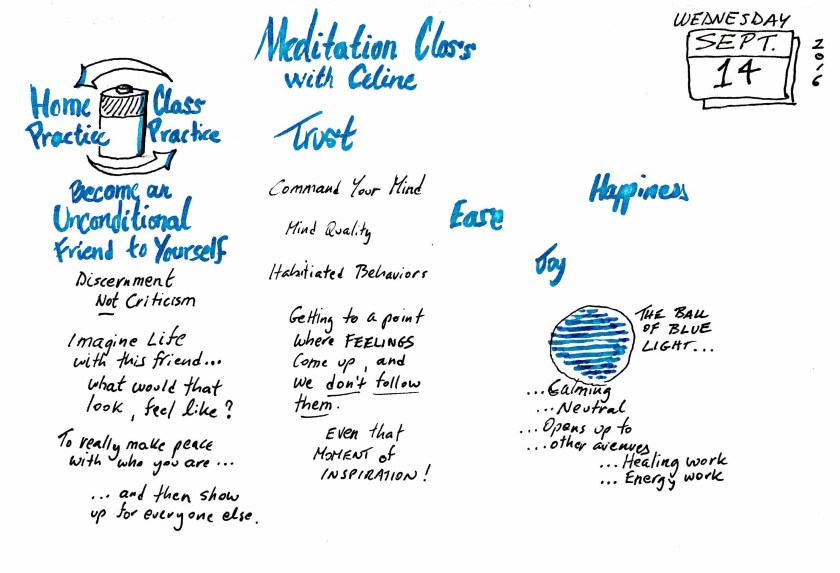 Meditation Class
with Celine
WEDNESDAY
SEPT.
14
2016
Home
Practice
Class
Practice
Become an
Unconditional
Friend to Yourself
Discernment
Not Criticism
Imagine Life
with this friend...
what would that
look, feel like?
To really make peace
with who you are...
... and then show
up for everyone else.
Trust
Command Your Mind
Mind Quality
Habitiated Behaviors
Getting to a point
where FEELINGS
come up, and
we don't follow
them.
Even that
MOMENT of
INSPIRATION!
Ease
Joy
Happiness
THE BALL
OF BLUE
LIGHT...
...Calming
...Neutral
...Opens up to
...other avenues
... Healing work
... Energy work